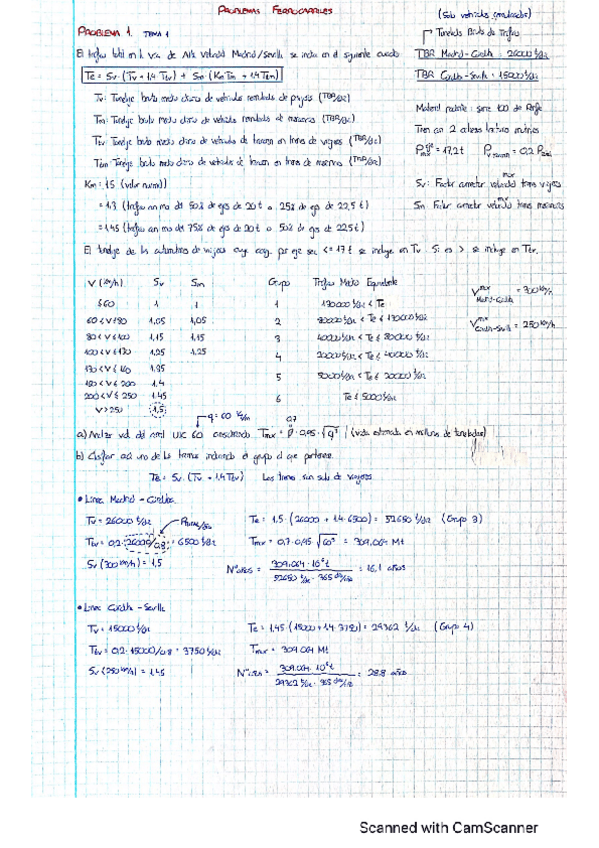 PROBLEMAS FERROCARRILES
(Sólo vehículos remolcados)
PROBLEMA 1. TEMA 1
Tonelada Bruta de Tráfico
El tráfico total en la vía de Alta Velocidad Madrid/Sevilla se indica en el siguiente cuadro
TBR Madrid-Córdoba = 26000 t/día
Te = Sv · (Tv + 1,4 Ttv) + Sm (Km Tm + 1,4 Ttm)
TBR Córdoba-Sevilla = 15000 t/día
Tv: Tonelaje bruto medio diario de vehículos remolcados de pasajeros (TBR/día)
Tm: Tonelaje bruto medio diario de vehículos remolcados de mercancías (TBR/día)
Material rodante: serie 100 de Renfe
Ttv: Tonelaje bruto medio diario de vehículos de tracción en trenes de viajeros (TBR/día)
Tren con 2 cabezas tractoras motrices
Ttm: Tonelaje bruto medio diario de vehículos de tracción en trenes de mercancías (TBR/día)
P max eje = 17,2 t P v.tracción = 0,2 P total
Km = 1,15 (valor normal)
Sv: Factor corrector velocidad max trenes viajeros
= 1,3 (tráfico con más del 50% de ejes de 20 t o 25% de ejes de 22,5 t)
Sm Factor corrector velocidad max trenes mercancías
= 1,45 (tráfico con más del 75% de ejes de 20 t o 50% de ejes de 22,5 t)
El tonelaje de los automotores de viajeros cuya carga por eje sea <= 17 t se incluye en Tv. Si es > se incluye en Ttv.
V (km/h) Sv Sm Grupo Tráfico Medio Equivalente
≤ 60 1 1 1 130000 t/día < Te
V max Madrid-Córdoba = 300 km/h
60 < V ≤ 80 1,05 1,05 2 80000 t/día < Te ≤ 130000 t/día
80 < V ≤ 100 1,15 1,15 3 40000 t/día < Te ≤ 80000 t/día
V max Córdoba-Sevilla = 250 km/h
100 < V ≤ 130 1,25 1,25 4 20000 t/día < Te ≤ 40000 t/día
130 < V ≤ 160 1,35 5 5000 t/día < Te ≤ 20000 t/día
160 < V ≤ 200 1,4
200 < V ≤ 250 1,45 6 Te ≤ 5000 t/día
V > 250 1,5
q = 60 kg/m
0,7
a) Analizar vid. del carril UIC 60 considerando Tmax = β · 0,95 · √q³ (vida estimada en millones de toneladas)
b) Clasificar cada uno de los tramos indicando el grupo al que pertenece.
Te = Sv · (Tv + 1,4 Ttv) Los trenes son solo de viajeros
• Línea Madrid - Córdoba
Tv = 26000 t/día
Te = 1,5 · (26000 + 1,4 · 6500) = 52650 t/día (Grupo 3)
Ttv = 0,2 · 26000/0,8 = 6500 t/día
Tmax = 0,7 · 0,95 √60³ = 309,064 Mt
Sv (300 km/h) = 1,5
Nº años = 309,064 · 10⁶ t / 52650 t/día · 365 día/año = 16,1 años
• Línea Córdoba - Sevilla
Tv = 15000 t/día
Te = 1,45 · (15000 + 1,4 · 3750) = 29362 t/día (Grupo 4)
Ttv = 0,2 · 15000/0,8 = 3750 t/día
Tmax = 309,064 Mt
Sv (250 km/h) = 1,45
Nº años = 309,064 · 10⁶ t / 29362 t/día · 365 día/año = 28,8 años
Scanned with CamScanner